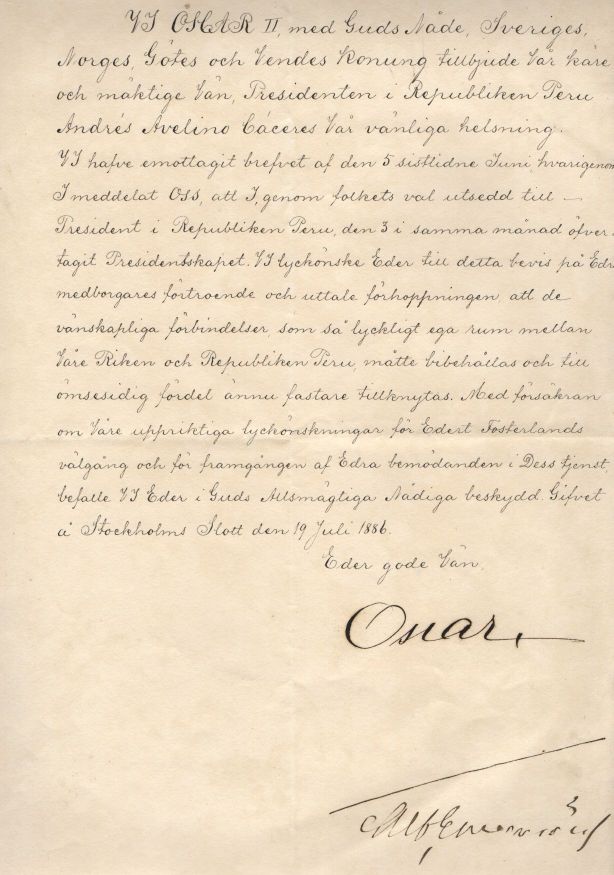 VI OSCAR II, med Guds Nåde, Sveriges,
Norges, Götes och Vendes Konung tillbjude Vår käre
och mäktige Vän, Presidenten i Republiken Peru
Andrés Avelino Cáceres Vår vänliga helsning.
VI hafve emottagit brefvet af den 5 sistlidne Juni hvarigenom
I meddelat Oss, att I, genom folkets val utsedd till —
President i Republiken Peru, den 3 i samma månad öfver-
tagit Presidentskapet. VI lyckönske Eder till detta bevis på Edra
medborgares förtroende och uttale förhoppningen, att de
vänskapliga förbindelser, som så lyckligt ega rum mellan
Våre Riken och Republiken Peru, måtte bibehållas och till
ömsesidig fördel ännu fastare tillknytas. Med försäkran
om Våre uppriktiga lyckönskningar för Edert Fosterlands
välgång och för framgången af Edra bemödanden i Dess tjenst,
befalle VI Eder i Guds Allsmägtiga Nådiga beskydd. Gifvet
å Stockholms Slott den 19 Juli 1886.
Eder gode Vän.
Oscar